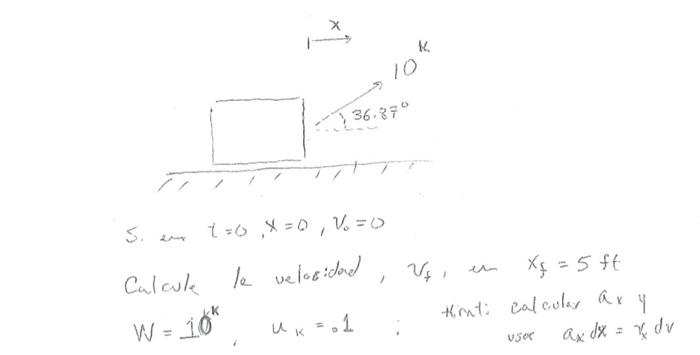 x
10 K
36.87°
Si en t=0, x=0, V₀=0
Calcule la velocidad, Vf, en xf = 5 ft
W = 10K, uK = .1 ; Hint: calcular ax y
usar ax dx = vx dv